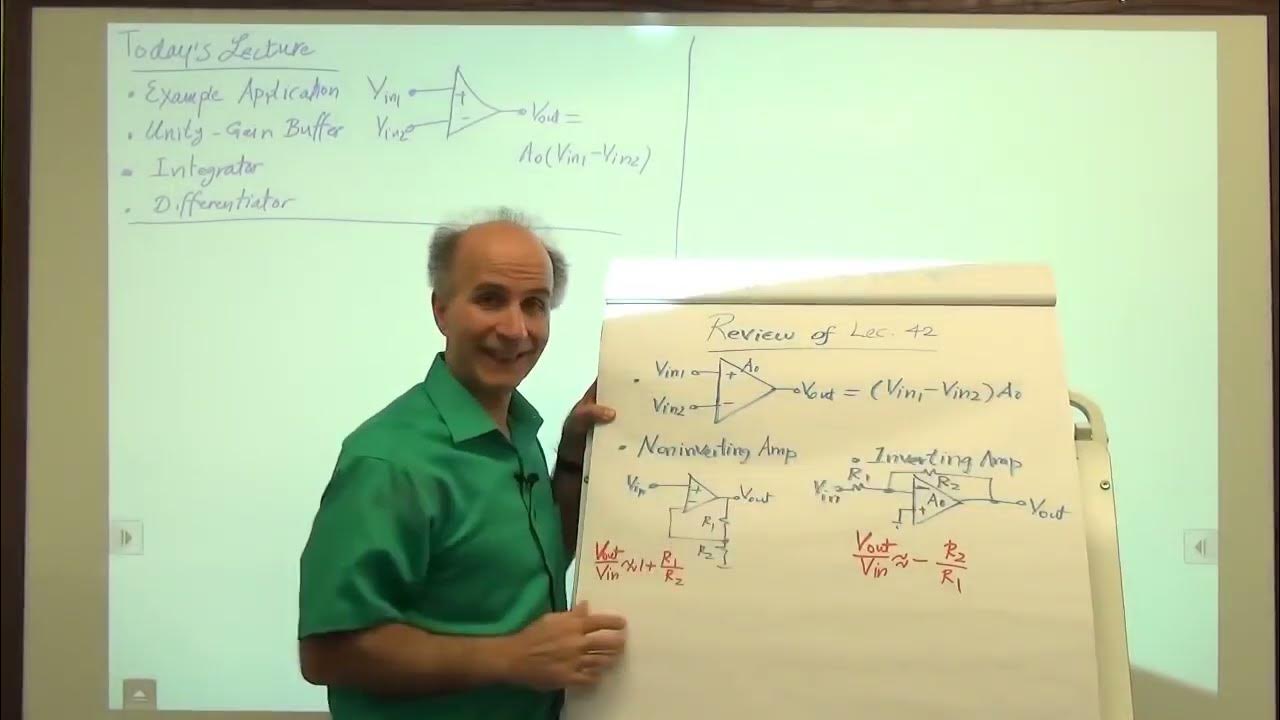 Today's Lecture
• Example Application
• Unity-Gain Buffer
• Integrator
• Differentiator
Vin1
Vin2
+
-
Vout =
A0(Vin1-Vin2)
Review of Lec. 42
• Vin1 + A0
Vin2 -
Vout = (Vin1-Vin2)A0
• Noninverting Amp
Vin + - Vout
R1
R2
Vout/Vin ≈ 1 + R1/R2
• Inverting Amp
Vin R1 R2
- A0 + Vout
Vout/Vin ≈ - R2/R1